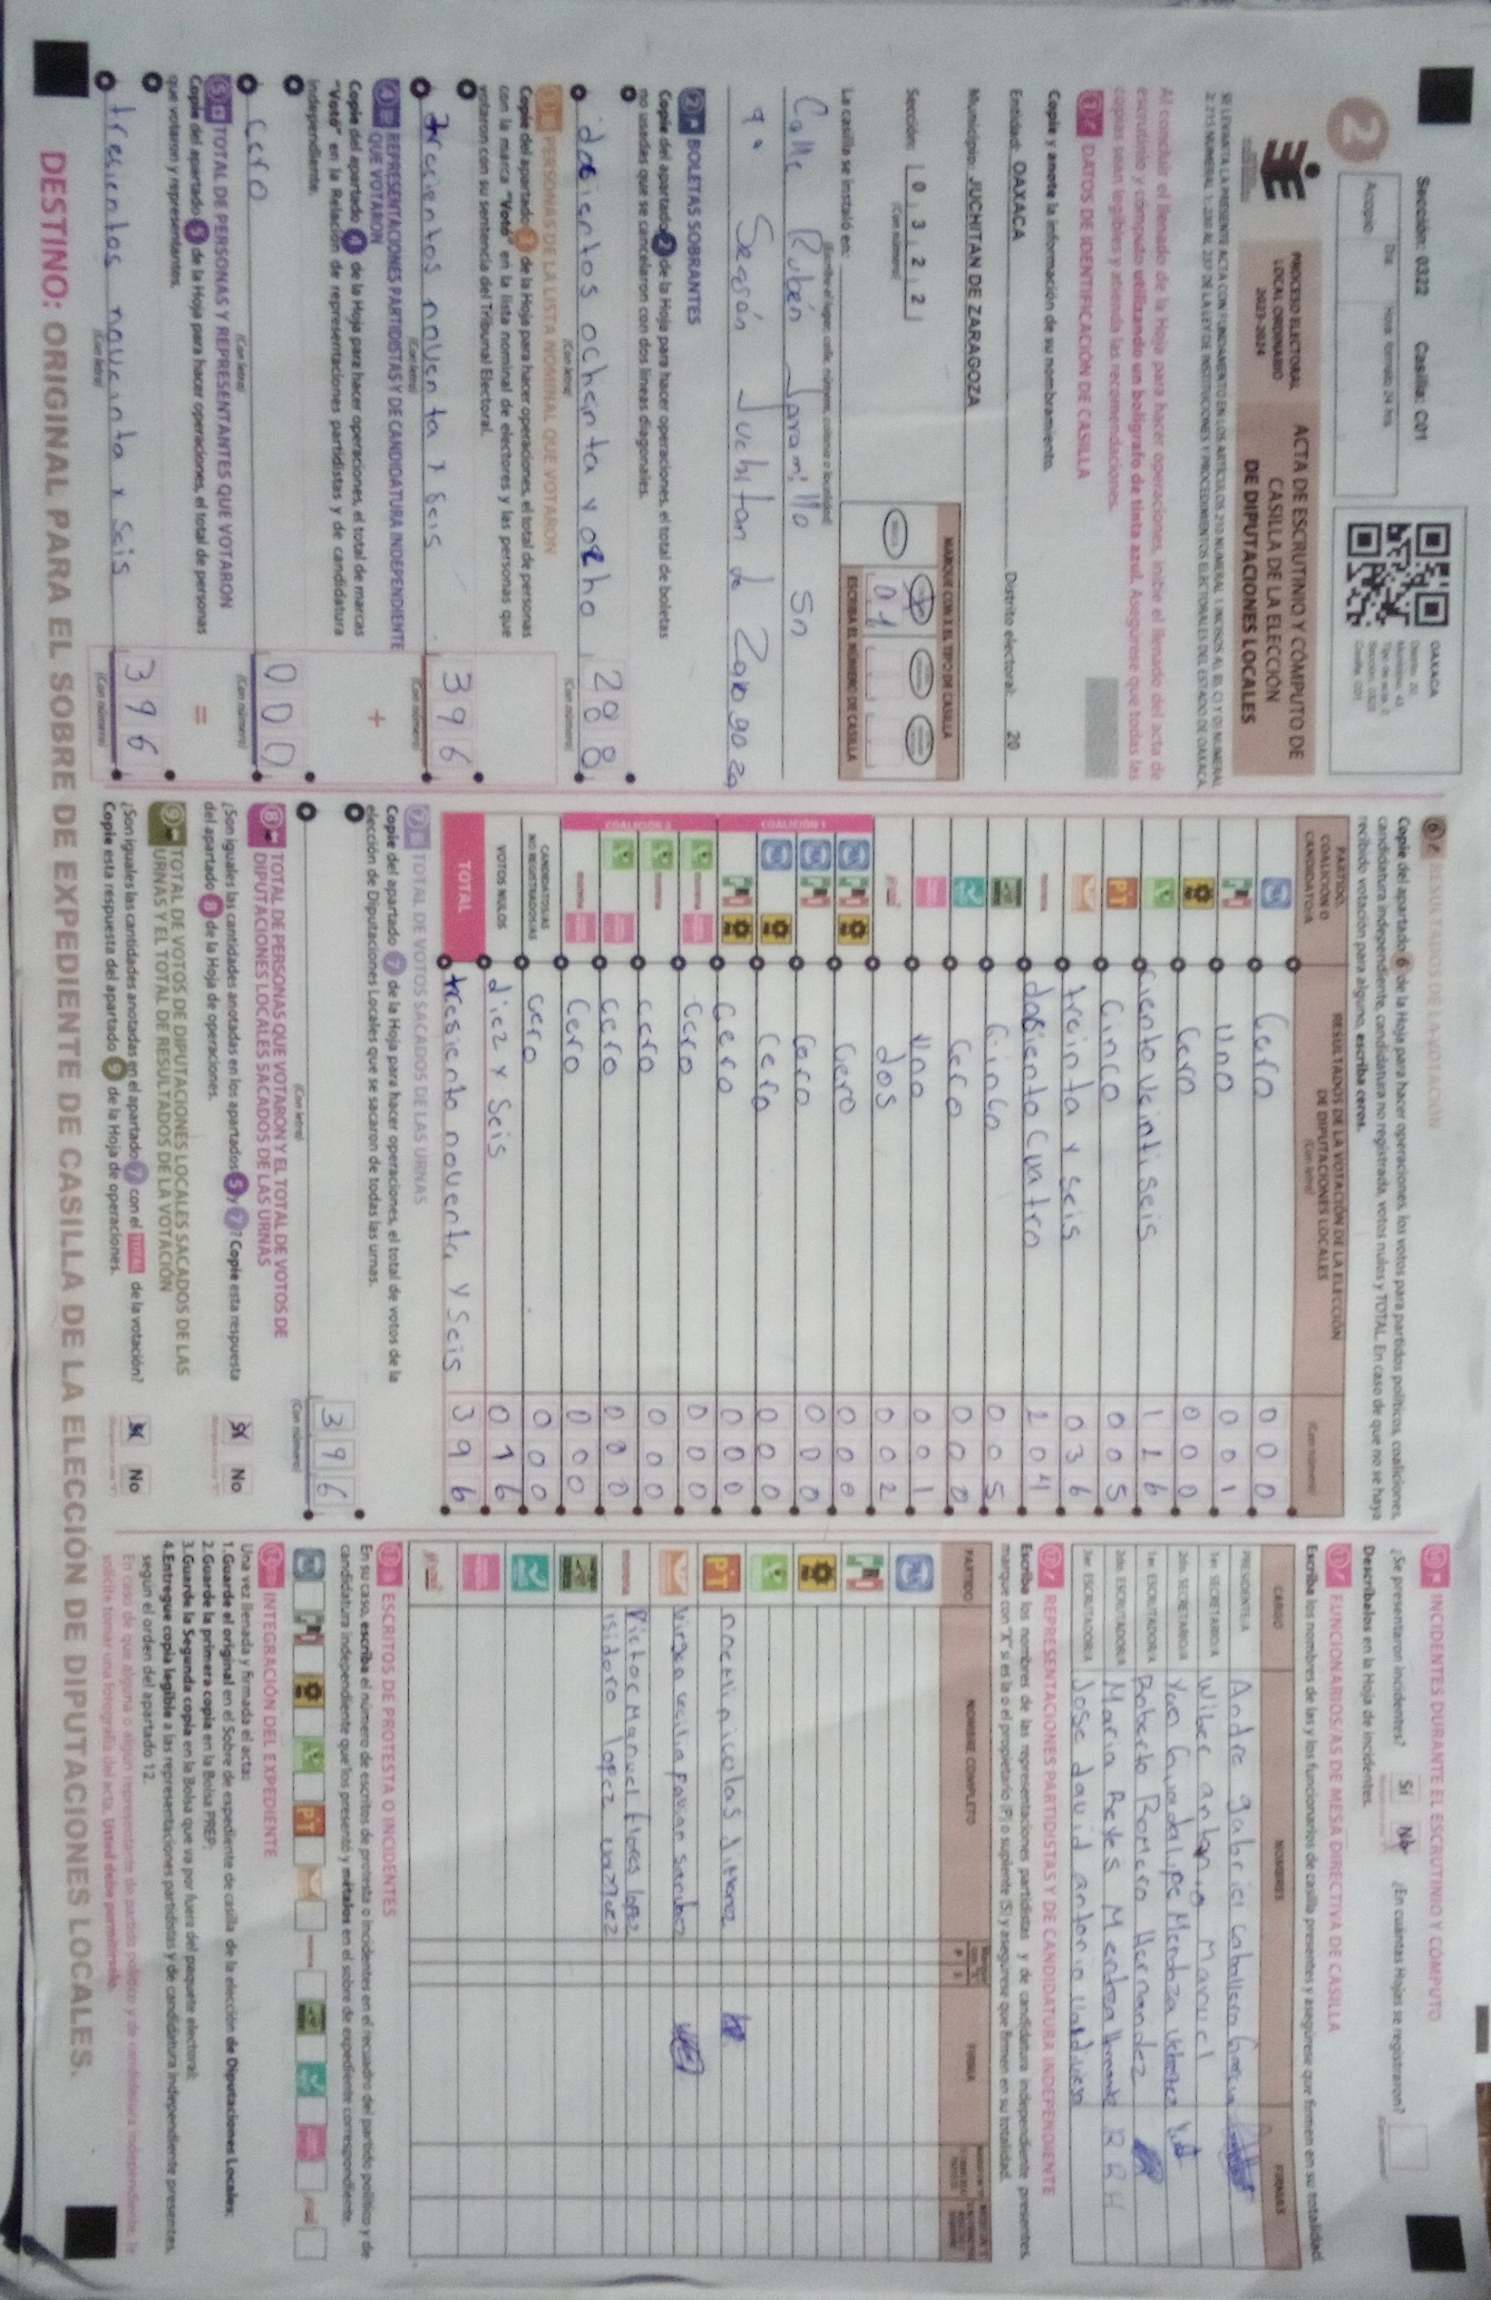 Sección: 0322 Casilla: C01
OAXACA
2
Acopio:
Día Hora formato 24 hrs.
PROCESO ELECTORAL
LOCAL ORDINARIO
2023-2024
ACTA DE ESCRUTINIO Y CÓMPUTO DE
CASILLA DE LA ELECCIÓN
DE DIPUTACIONES LOCALES
Al concluir el llenado de la Hoja para hacer operaciones, inicie el llenado del acta de
escrutinio y cómputo utilizando un bolígrafo de tinta azul. Asegúrese que todas las
copias sean legibles y atienda las recomendaciones.
1 DATOS DE IDENTIFICACIÓN DE CASILLA
Copie y anote la información de su nombramiento.
Entidad: OAXACA Distrito electoral: 20
Municipio: JUCHITAN DE ZARAGOZA
Sección: 0 3 2 2
(Con número)
MARQUE CON X EL TIPO DE CASILLA
01
ESCRIBA EL NÚMERO DE CASILLA
La casilla se instaló en:
(Escriba el lugar, calle, número, colonia o localidad)
Calle Rubén Jaramillo Sn
9ª Sección Juchitan de Zaragoza
2 BOLETAS SOBRANTES
Copie del apartado 2 de la Hoja para hacer operaciones, el total de boletas
no usadas que se cancelaron con dos líneas diagonales.
docientos ochenta y ocho 288
(Con letra) (Con número)
3 PERSONAS DE LA LISTA NOMINAL QUE VOTARON
Copie del apartado 3 de la Hoja para hacer operaciones, el total de personas
con la marca "Votó" en la lista nominal de electores y las personas que
votaron con su sentencia del Tribunal Electoral.
trecientos noventa y seis 396
(Con letra) (Con número)
4 REPRESENTACIONES PARTIDISTAS Y DE CANDIDATURA INDEPENDIENTE
QUE VOTARON
Copie del apartado 4 de la Hoja para hacer operaciones, el total de marcas
"Votó" en la Relación de representaciones partidistas y de candidatura
independiente.
+
cero 000
(Con letra) (Con número)
5 TOTAL DE PERSONAS Y REPRESENTANTES QUE VOTARON
Copie del apartado 5 de la Hoja para hacer operaciones, el total de personas
que votaron y representantes.
=
trecientos noveinta y seis 396
(Con letra) (Con número)
6 RESULTADOS DE LA VOTACIÓN
Copie del apartado 6 de la Hoja para hacer operaciones, los votos para partidos políticos, coaliciones,
candidatura independiente, candidatura no registrada, votos nulos y TOTAL. En caso de que no se haya
recibido votación para alguno, escriba ceros.
PARTIDO,
COALICIÓN O
CANDIDATO/A
RESULTADOS DE LA VOTACIÓN DE LA ELECCIÓN
DE DIPUTACIONES LOCALES
(Con letra) (Con número)
Cero 000
Uno 001
Cero 000
PT Cinco 005
ciento veintiseis 126
treinta y seis 036
morena dosciento cuatro 204
Cinco 005
Cero 000
Uno 001
dos 002
COALICIÓN 1
Cero 000
Cero 000
Cero 000
Cero 000
COALICIÓN 2
Cero 000
cero 000
cero 000
Cero 000
CANDIDATOS/AS
NO REGISTRADOS/AS cero 000
VOTOS NULOS diez y seis 016
TOTAL tresiento noventa y seis 396
7 TOTAL DE VOTOS SACADOS DE LAS URNAS
Copie del apartado 7 de la Hoja para hacer operaciones, el total de votos de la
elección de Diputaciones Locales que se sacaron de todas las urnas.
396
(Con letra) (Con número)
8 TOTAL DE PERSONAS QUE VOTARON Y EL TOTAL DE VOTOS DE
DIPUTACIONES LOCALES SACADOS DE LAS URNAS
¿Son iguales las cantidades anotadas en los apartados 5 y 7? Copie esta respuesta
del apartado 8 de la Hoja de operaciones.
Sí No
9 TOTAL DE VOTOS DE DIPUTACIONES LOCALES SACADOS DE LAS
URNAS Y EL TOTAL DE RESULTADOS DE LA VOTACIÓN
¿Son iguales las cantidades anotadas en el apartado 7 con el TOTAL de la votación?
Copie esta respuesta del apartado 9 de la Hoja de operaciones.
Sí No
INCIDENTES DURANTE EL ESCRUTINIO Y CÓMPUTO
¿Se presentaron incidentes? Sí No ¿En cuántas Hojas se registraron?
Descríbalos en la Hoja de incidentes.
FUNCIONARIOS/AS DE MESA DIRECTIVA DE CASILLA
Escriba los nombres de las y los funcionarios de casilla presentes y asegúrese que firmen en su totalidad.
CARGO NOMBRES FIRMAS
PRESIDENTE/A Andre gabriel caballero Garcia
1er. SECRETARIO/A Wiber antonio Manuel
2do. SECRETARIO/A
1er. ESCRUTADOR/A Roberto Romero Hernandez
2do. ESCRUTADOR/A Maria Reyes Mendoza Hernande RRH
3er. ESCRUTADOR/A Jose david antonio
REPRESENTACIONES PARTIDISTAS Y DE CANDIDATURA INDEPENDIENTE
Escriba los nombres de las representaciones partidistas y de candidatura independiente presentes,
marque con "X" si es la o el propietario (P) o suplente (S) y asegúrese que firmen en su totalidad.
PARTIDO NOMBRE COMPLETO FIRMA
PT noemi nicolas Jimenez
Virgen cecilia Pavian Sanchez
morena Victor Manuel flores lopez
isidoro lopez vazquez
ESCRITOS DE PROTESTA O INCIDENTES
En su caso, escriba el número de escritos de protesta o incidentes en el recuadro del partido político y de
candidatura independiente que los presentó y métalos en el sobre de expediente correspondiente.
INTEGRACIÓN DEL EXPEDIENTE
Una vez llenada y firmada el acta:
1. Guarde el original en el Sobre de expediente de casilla de la elección de Diputaciones Locales;
2. Guarde la primera copia en la Bolsa PREP;
3. Guarde la Segunda copia en la Bolsa que va por fuera del paquete electoral;
4. Entregue copia legible a las representaciones partidistas y de candidatura independiente presentes,
según el orden del apartado 12.
En caso de que alguna o algún representante de partido político y de candidatura independiente, le
solicite tomar una fotografía del acta, usted debe permitírselo.
DESTINO: ORIGINAL PARA EL SOBRE DE EXPEDIENTE DE CASILLA DE LA ELECCIÓN DE DIPUTACIONES LOCALES.